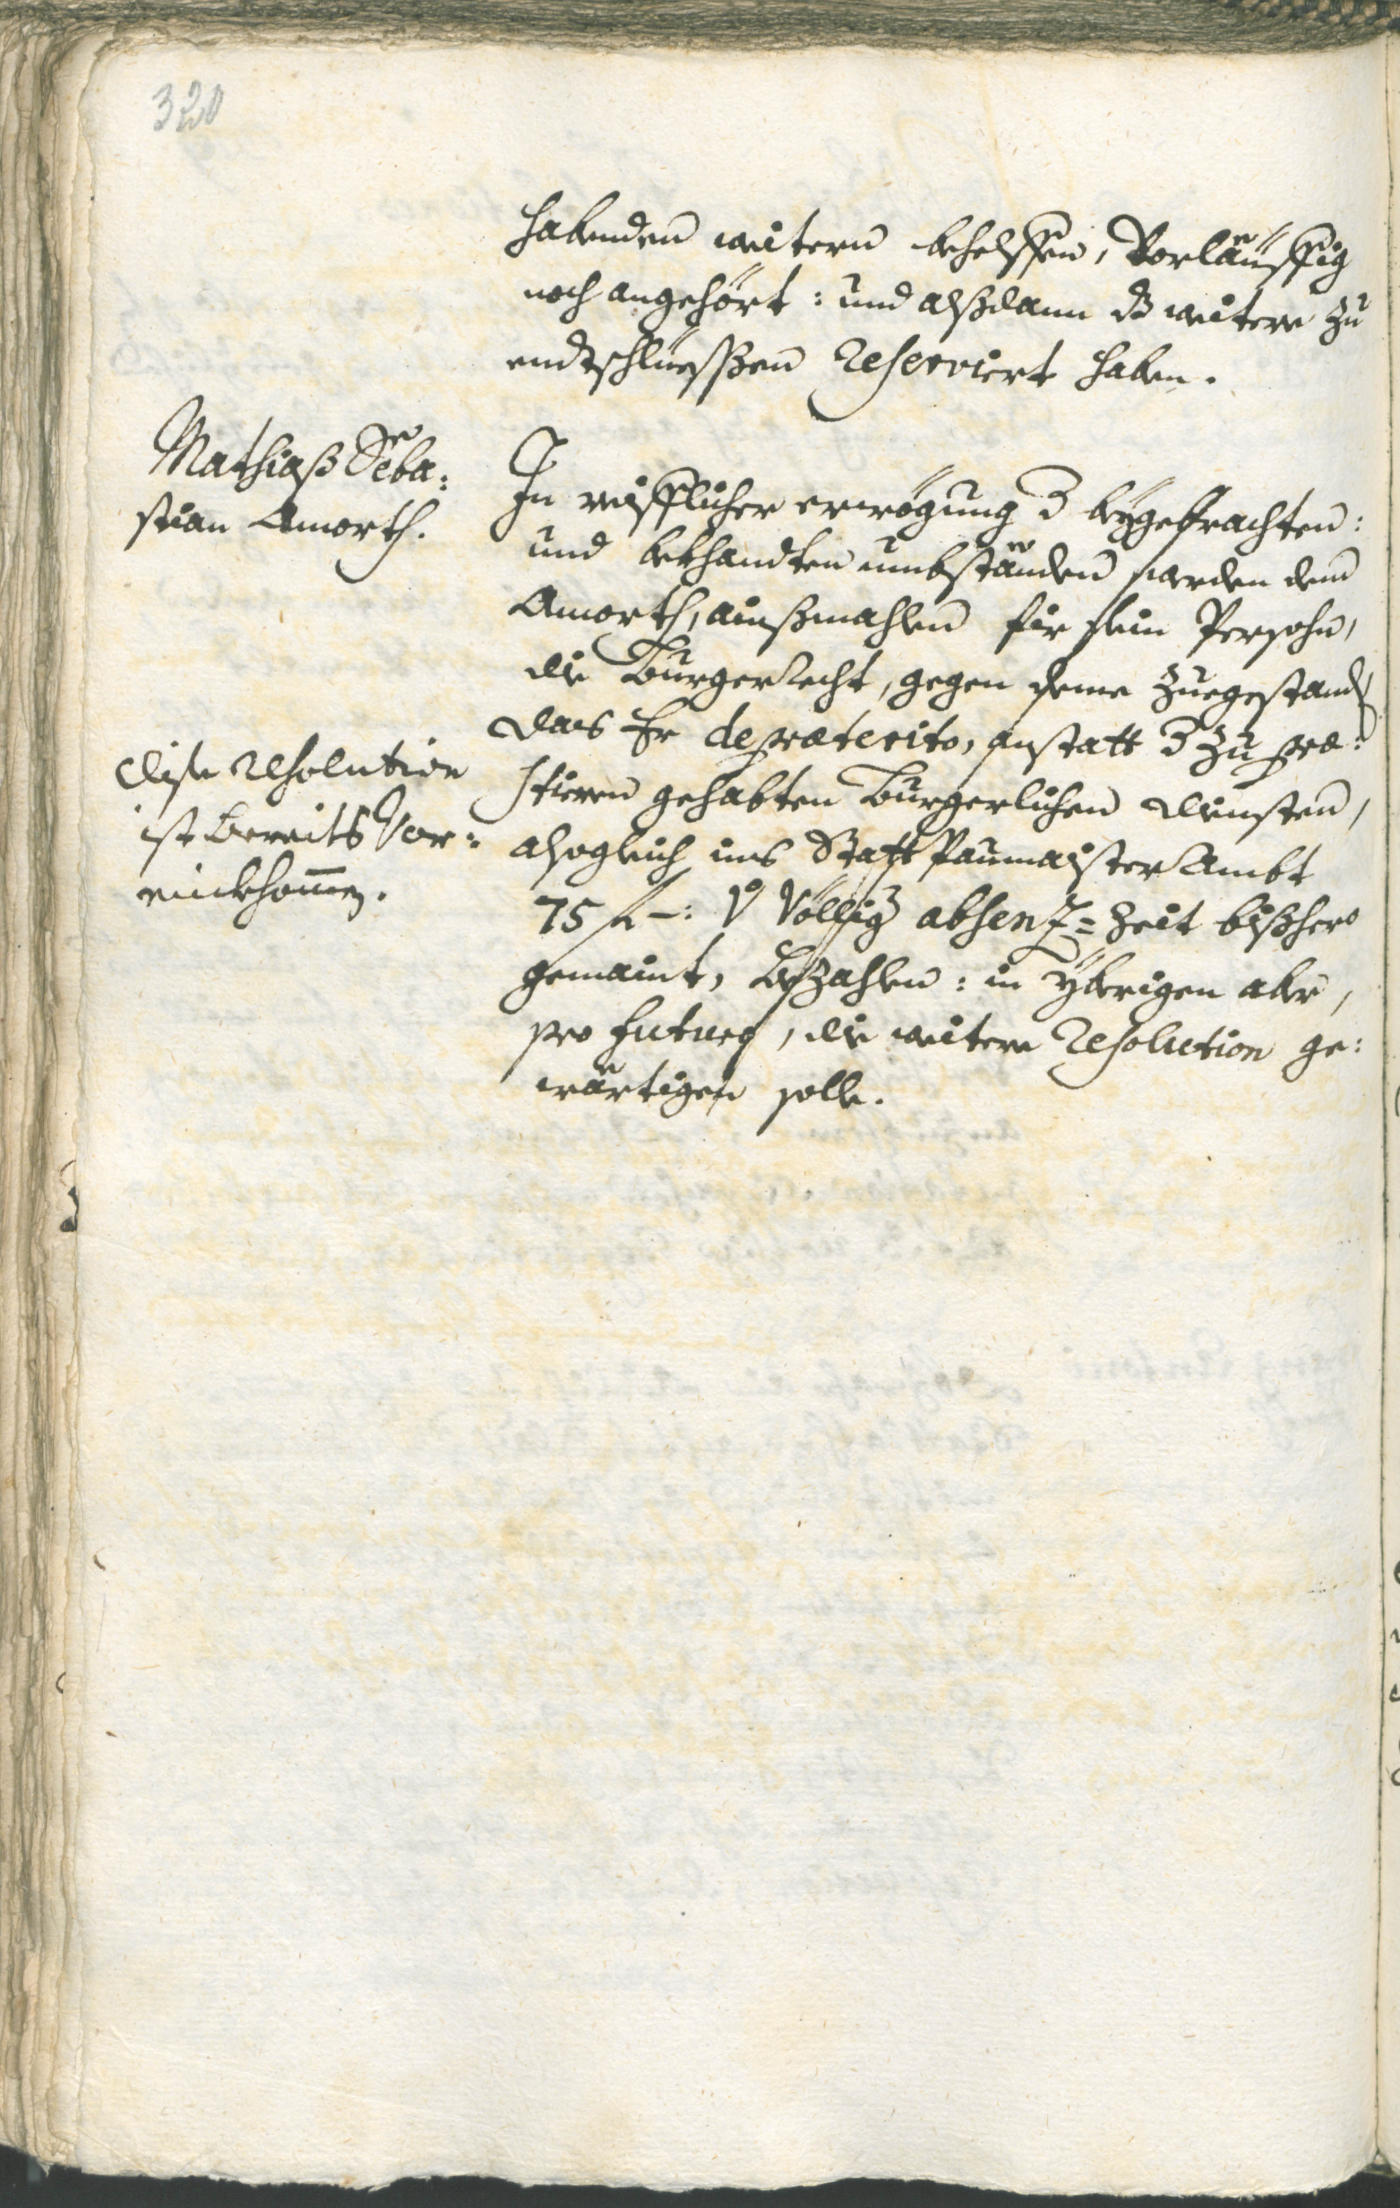 320
habenden weitern behelffen, Vorläuffig
noch angehört: und alßdann dz weitere zu
endtschlüessen Reserviert haben.
Mathiaß Seba:
stian Amorth.
In reifflicher erwögung d beygebrachten:
und bekhandten umbständen werden dem
Amorth, ainßmahlen für sein Persohn,
die Burgerrecht, gegen deme Zuegestandt
das Er de præterito, anstatt d zu præ:
stieren gehabten Burgerlichen diensten,
alsogleich ins Statt Paumaister Ambt
75 f -: völlig absenz= Zeit bißhero
gemaint, Bezahlen: in ÿbrigen aber,
pro futuro, die weitere Resolution ge:
wärtigen solle.
dise resolution
ist bereits vor:
einkhommen.